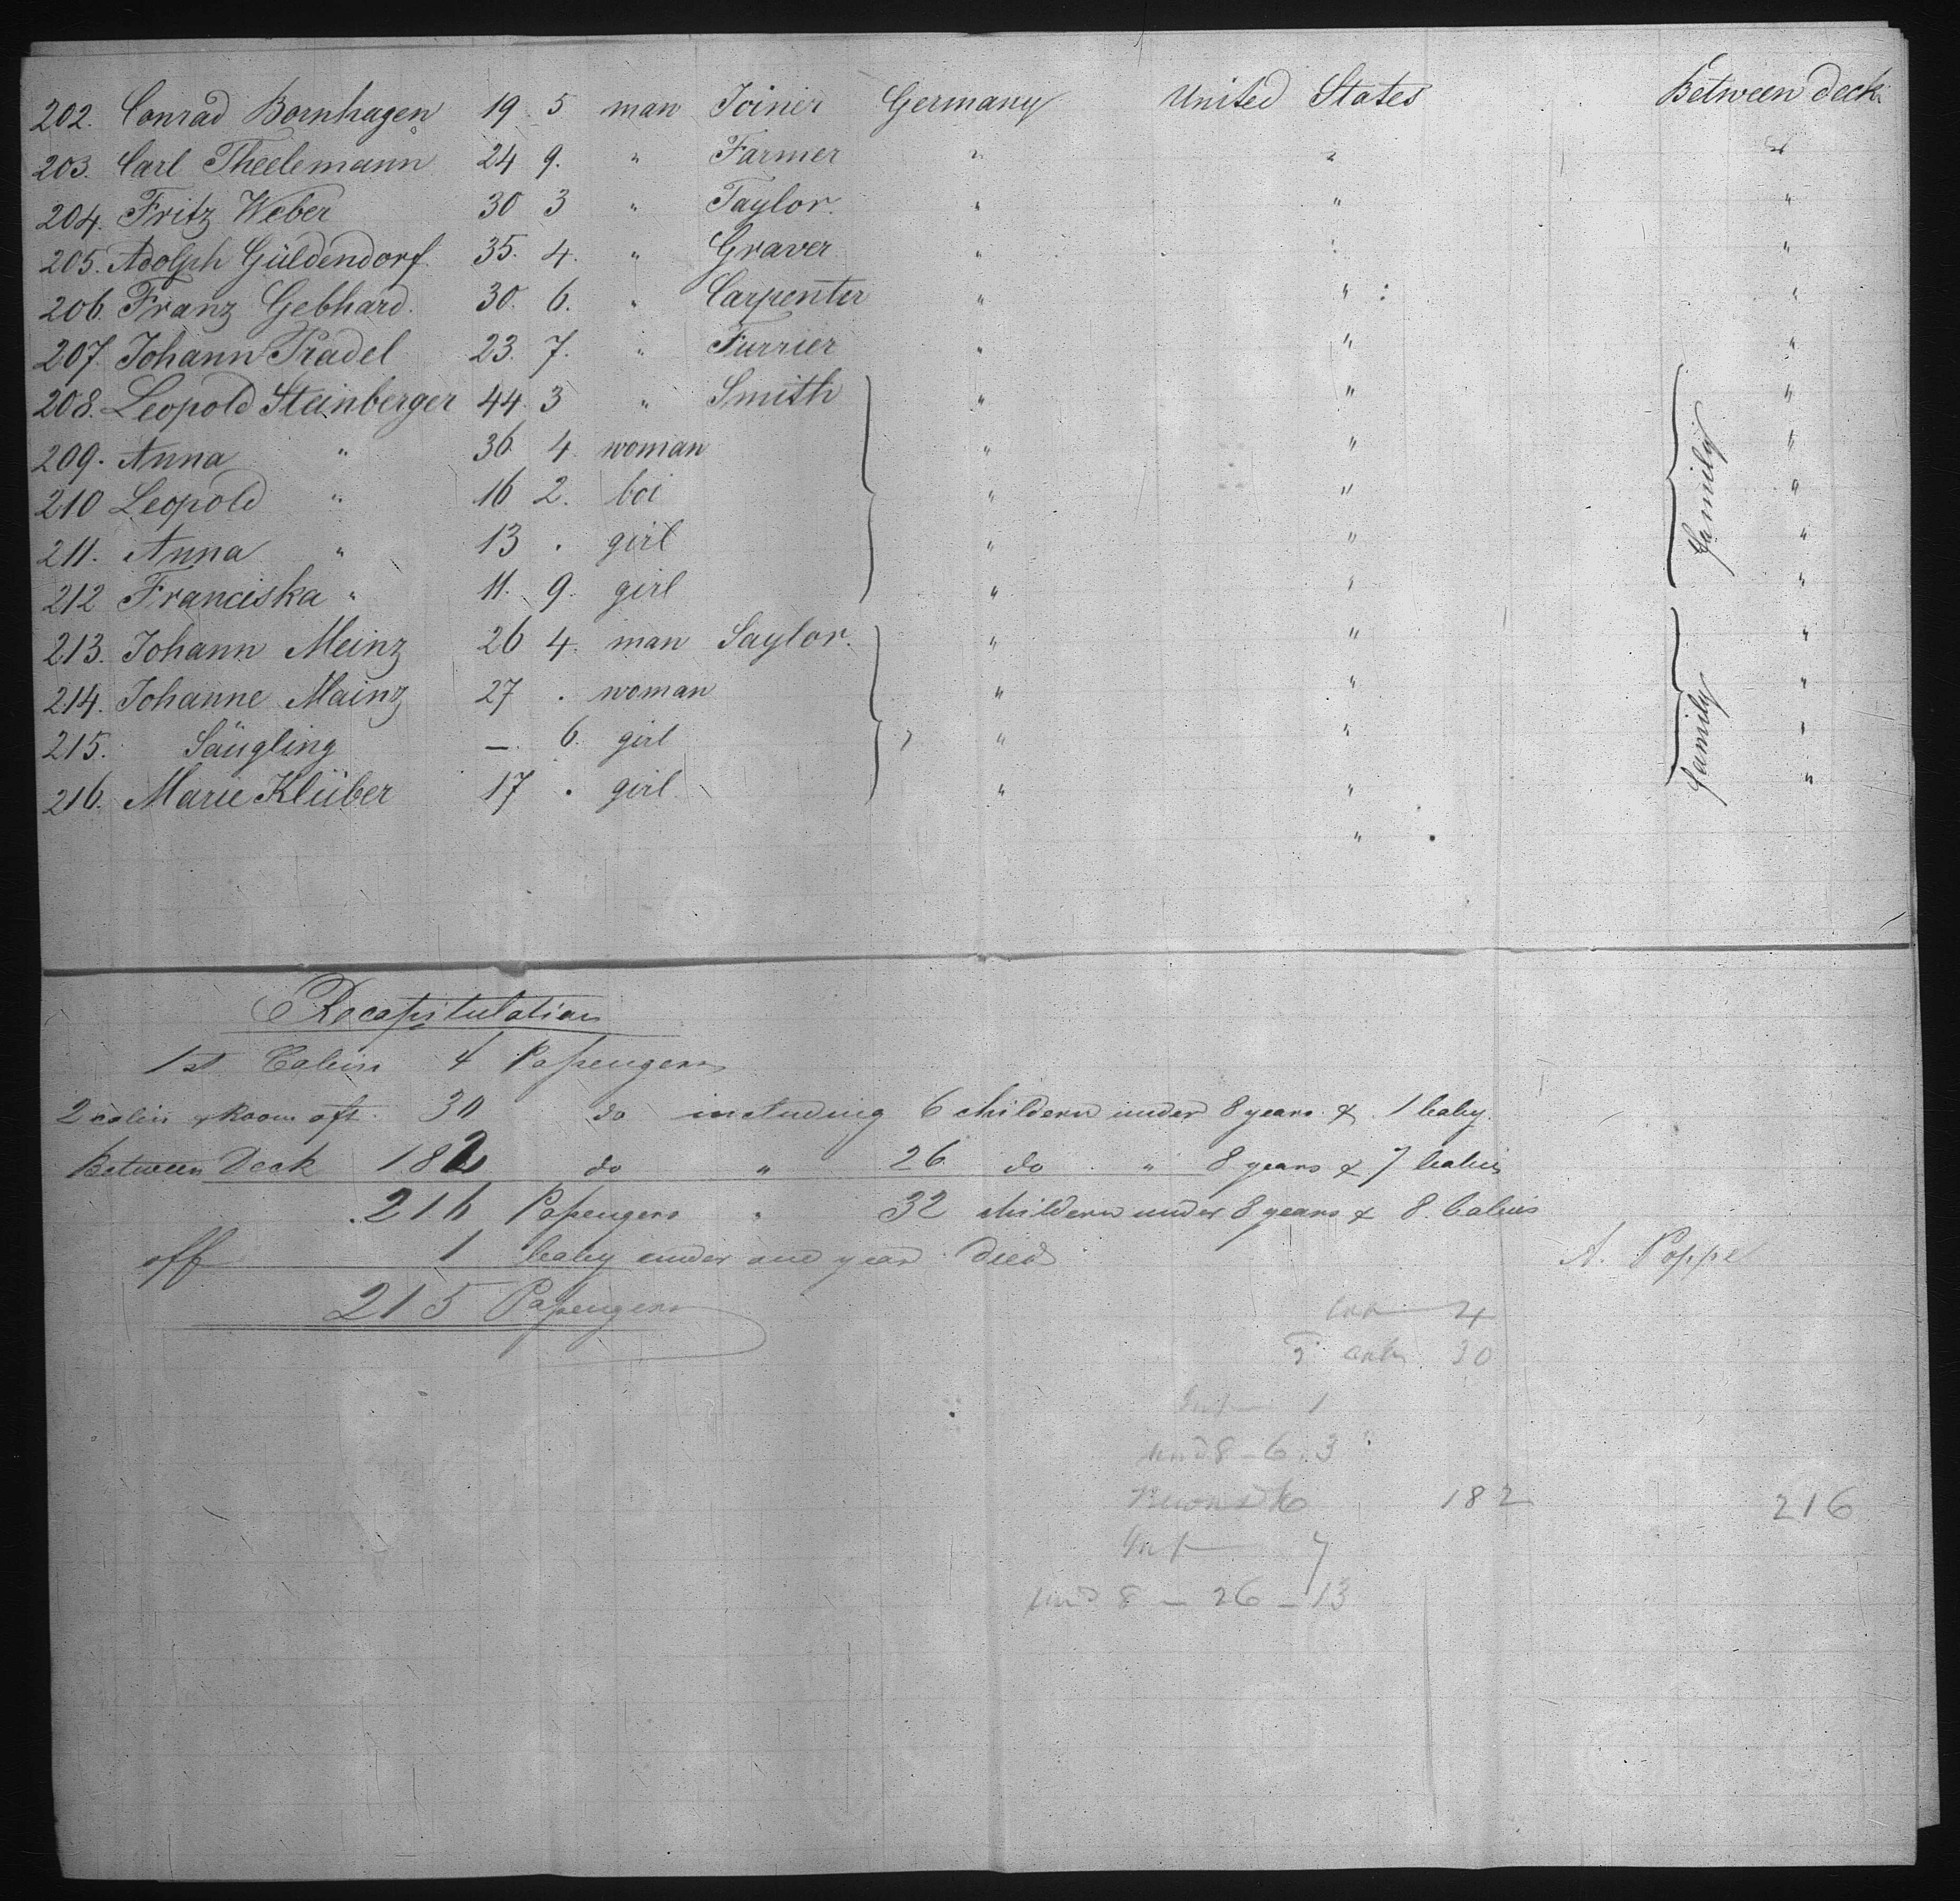 202. Conrad Bornhagen 19 5 man Joiner Germany United States Between deck
203. Carl Theelemann 24 9. " Farmer " " "
204. Fritz Weber 30 3 " Taylor. " " "
205. Adolph Güldendorf. 35. 4. " Graver " " "
206. Franz Gebhard. 30. 6. " Carpenter " " "
207. Johann Pradel 23. 7. " Furrier " " "
208. Leopold Steinberger 44. 3 " Smith " " "
209. Anna " 36 4. woman " " "
210 Leopold " 16 2. boi " " " family
211. Anna " 13 . girl " " "
212 Franciska " 11. 9. girl " " "
213. Johann Meinz 26 4. man Saylor. " " "
214. Johanne Mainz 27 . woman " " "
215. Säugling —. 6. girl " " " family
216. Marie Klüber 17 . girl. " " "
"
Recapitulation
1st Cabin 4 Passengers
2 cabin & Room aft. 30 do including 6 childern under 8 years & 1 baby.
Between Deck 182 do " 26 do " 8 years & 7 babies
216 Passengers " 32 childern under 8 years & 8 babies
off 1 baby under one year died A. Poppe
215 Passengers
4
30
Inf 1
und 8 - 6. 3
182 216
Inf 7
und 8 - 26 - 13